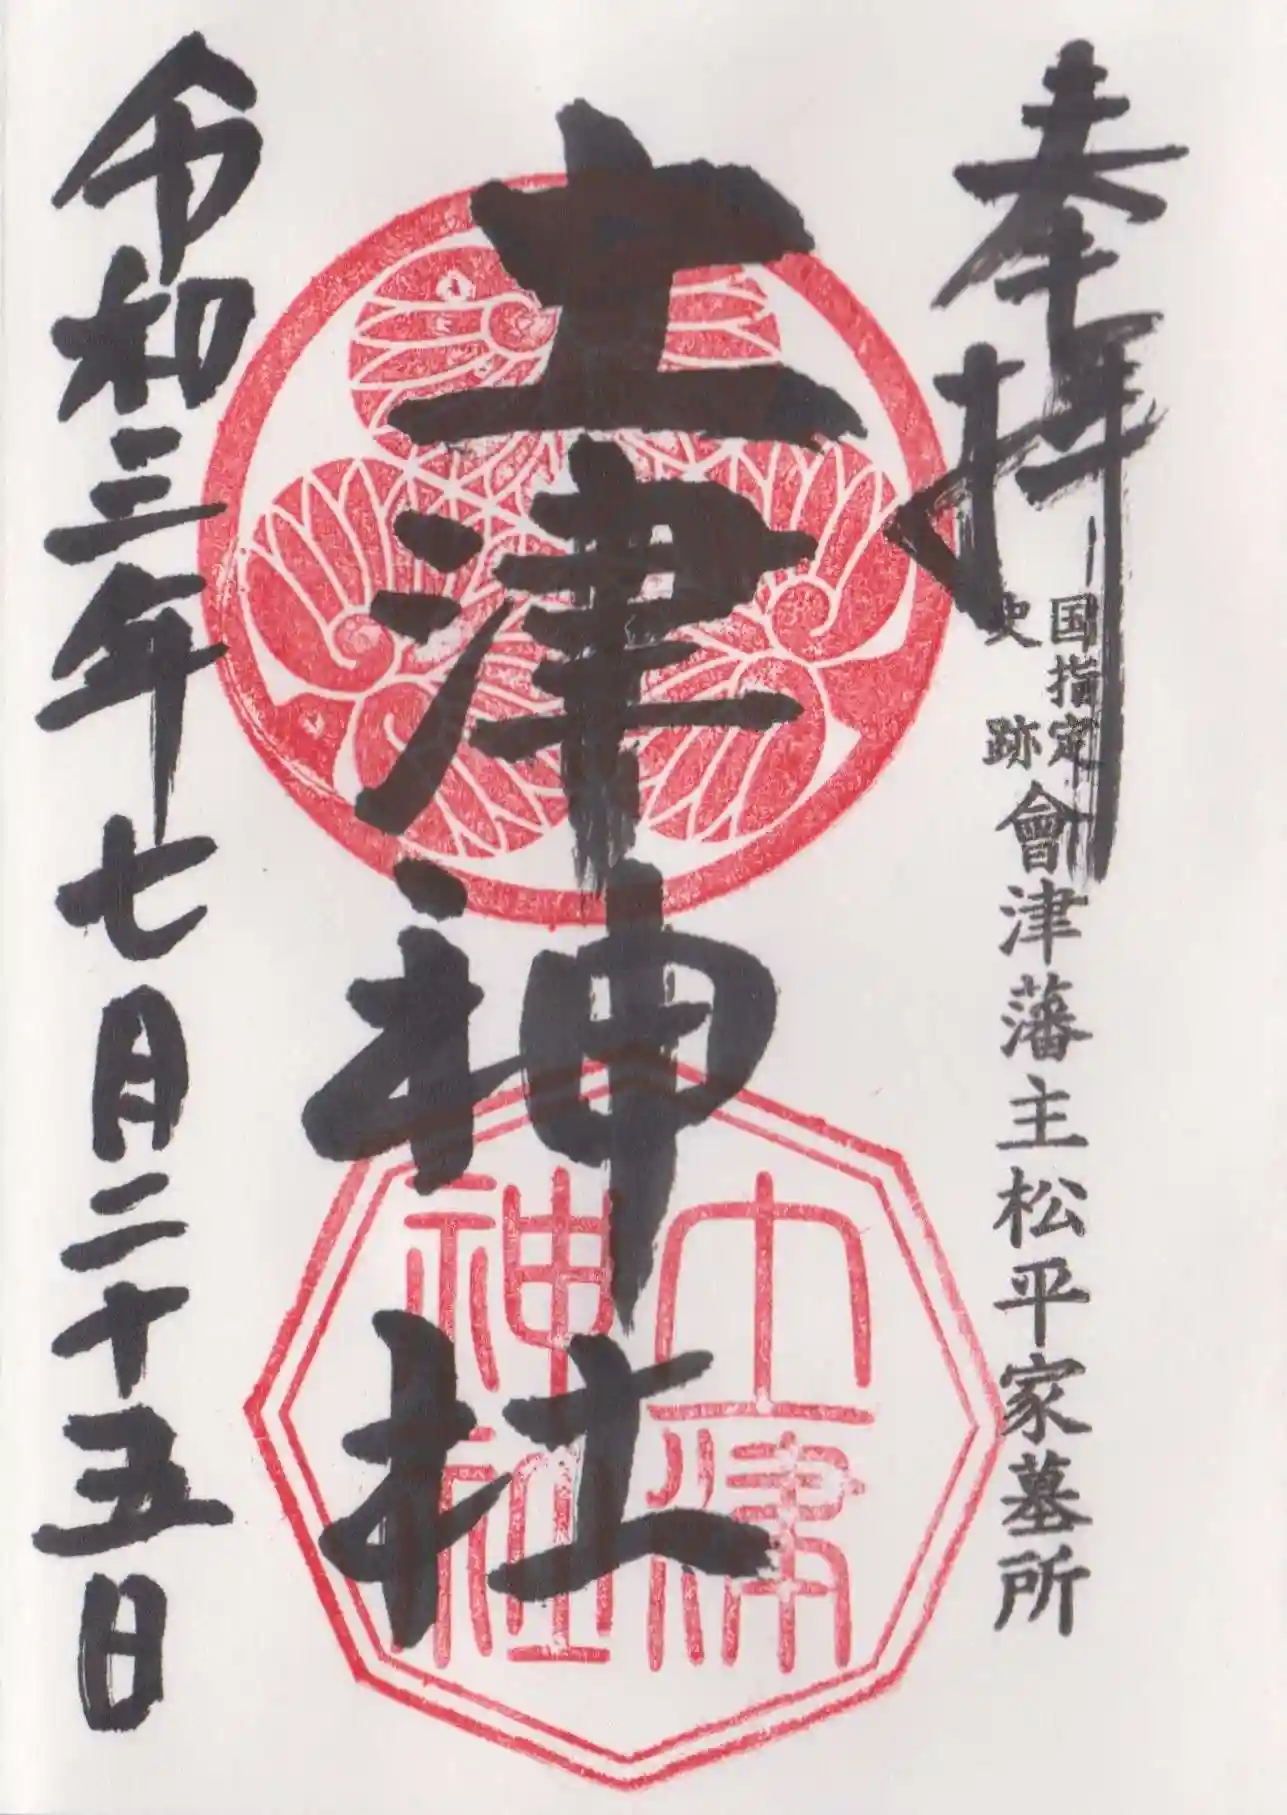 奉拝
国指定
史跡
會津藩主松平家墓所
土津神社
土津
神社
令和三年七月二十五日